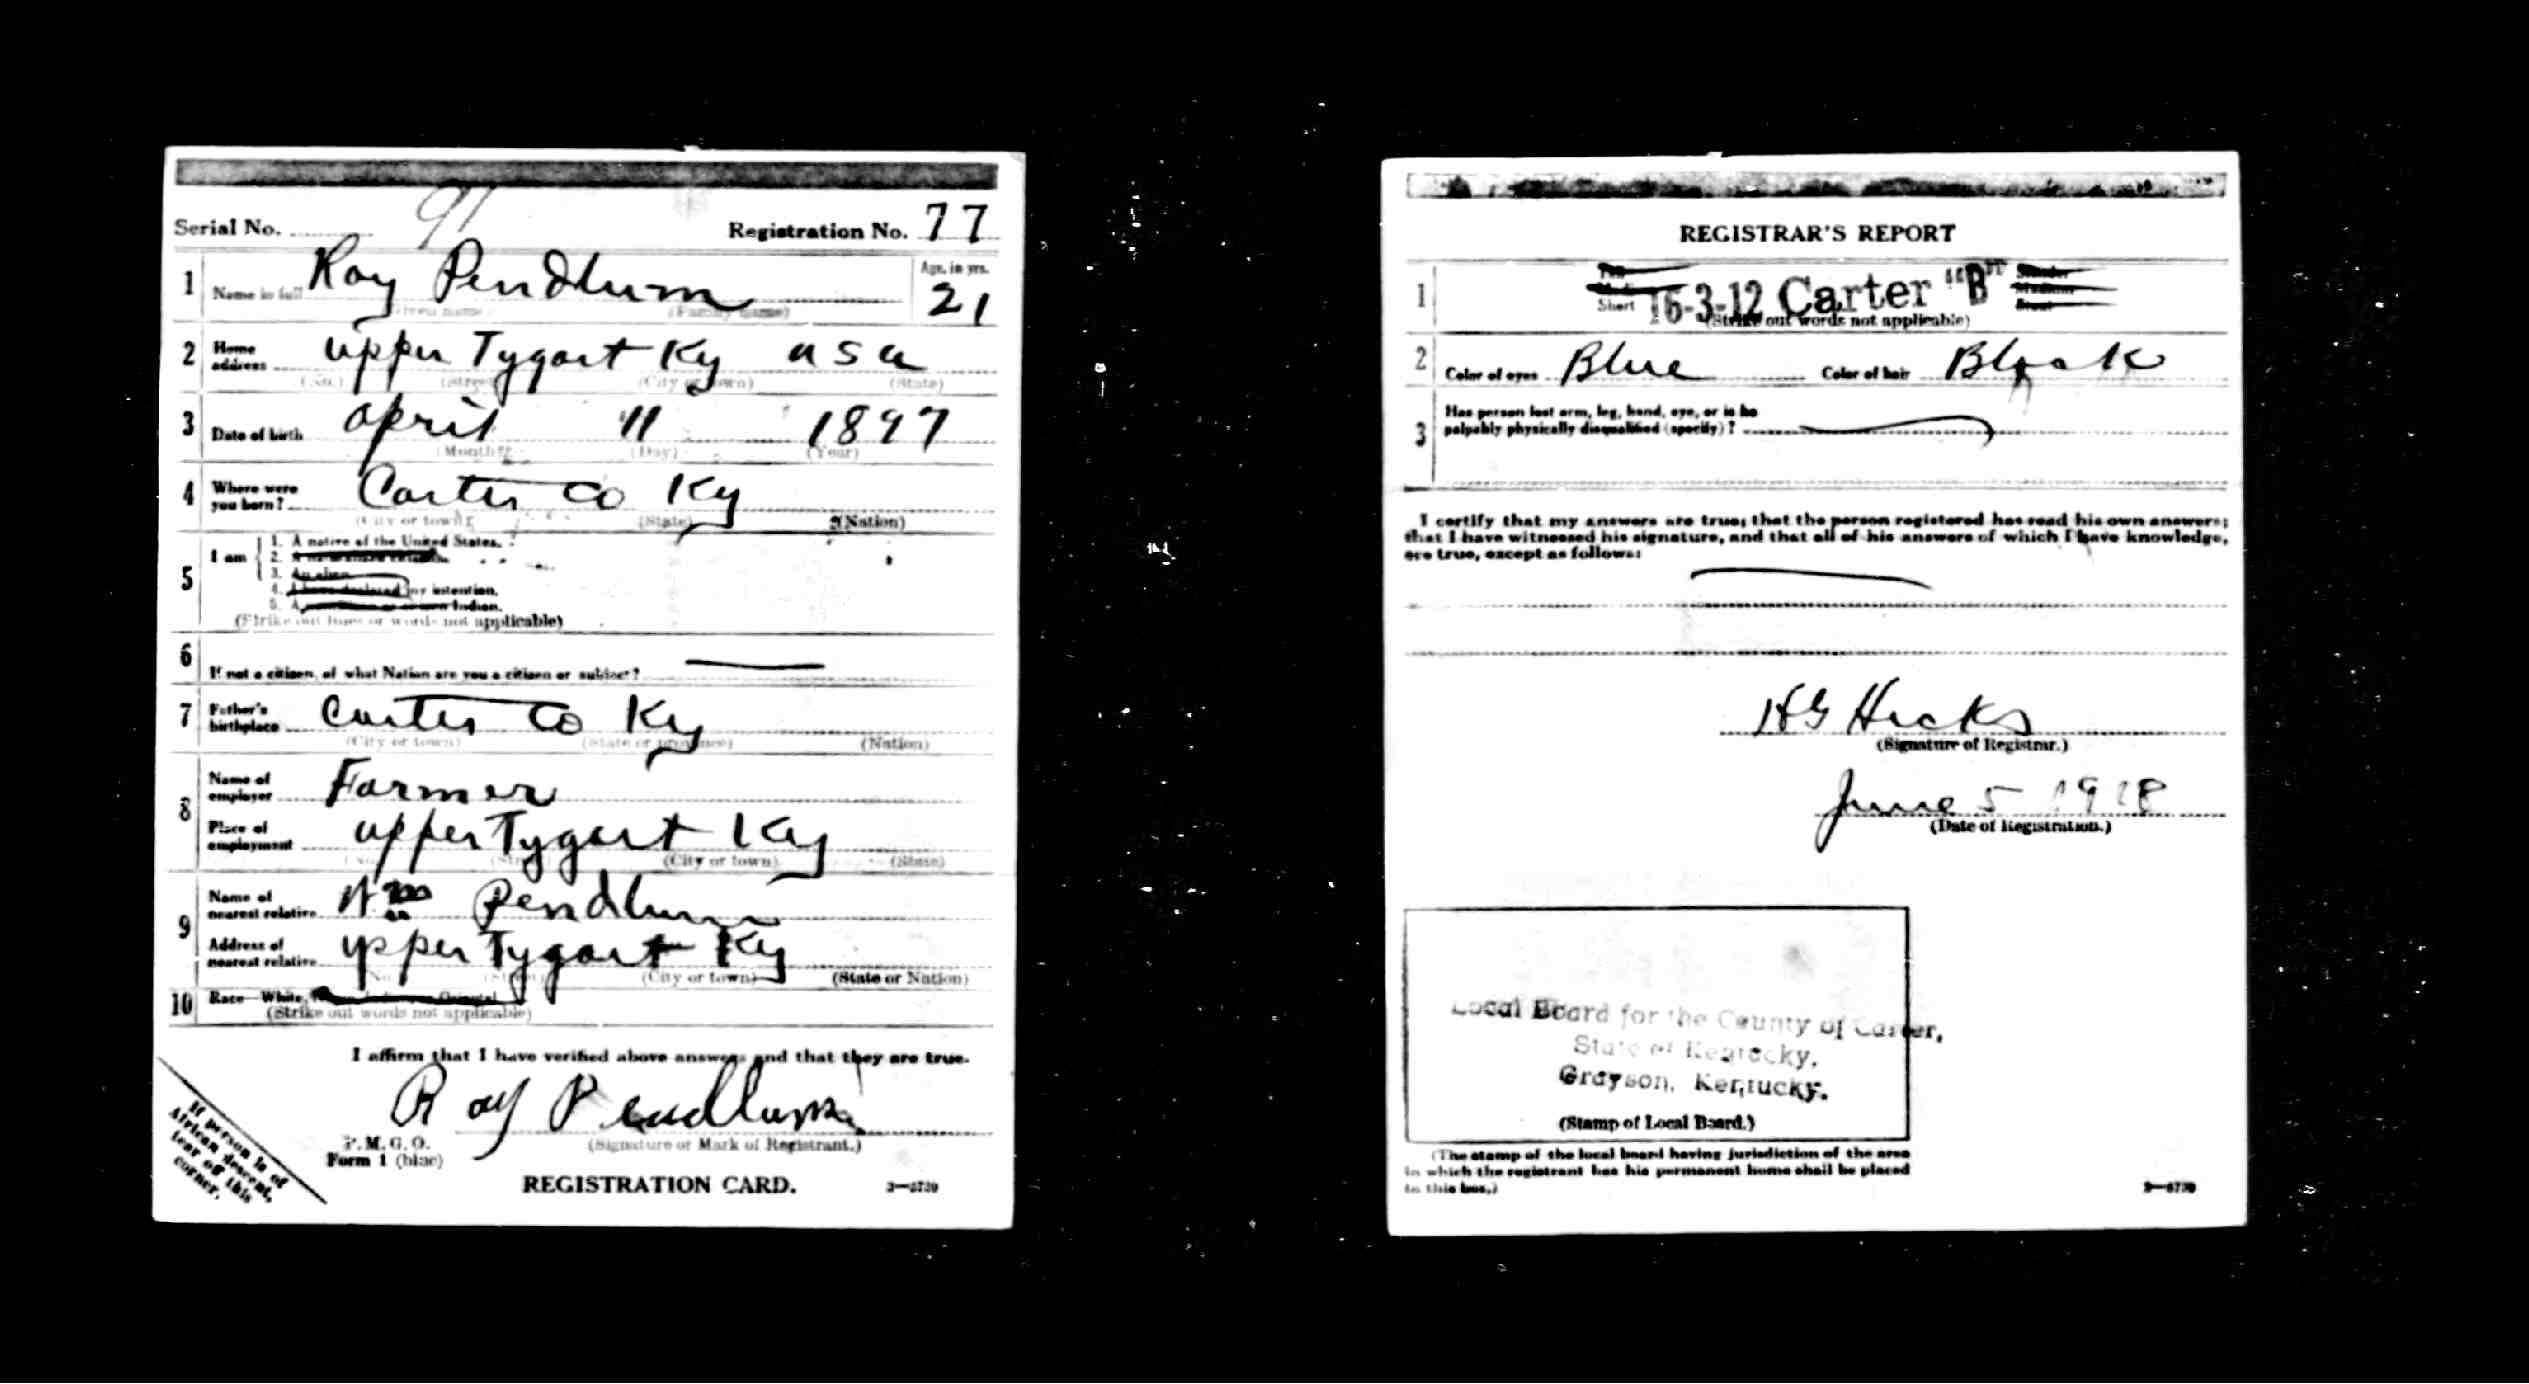 Serial No. 91 Registration No. 77
1 Name in full Roy Pendlum Age, in yrs. 21
(Given name) (Family name)
2 Home address upper Tygart Ky USA
(No.) (Street) (City or town) (State)
3 Date of birth april 11 1897
(Month) (Day) (Year)
4 Where were you born? Carter Co Ky
(City or town) (State) (Nation)
5 I am
1. A native of the United States.
2. A
3. An alien
4. I have declared my intention.
5. A Indian.
(Strike out lines or words not applicable)
6 If not a citizen, of what Nation are you a citizen or subject?
7 Father's birthplace Carter Co Ky
(City or town) (State or province) (Nation)
8 Name of employer Farmer
Place of employment upper Tygart Ky
(No.) (Street) (City or town) (State)
9 Name of nearest relative Wm Pendlum
Address of nearest relative upper Tygart Ky
(No.) (Street) (City or town) (State or Nation)
10 Race—White, Oriental
(Strike out words not applicable)
I affirm that I have verified above answers and that they are true.
Roy Pendlum
P. M. G. O. (Signature or Mark of Registrant.)
Form 1 (blue)
REGISTRATION CARD.
If person is of
African descent,
tear off this
corner.
REGISTRAR'S REPORT
1 Tall Slender
Medium
Short 16-3-12 Carter "B" Stout
(Strike out words not applicable)
2 Color of eyes Blue Color of hair Black
3 Has person lost arm, leg, hand, eye, or is he
palpably physically disqualified (specify)?
I certify that my answers are true; that the person registered has read his own answers;
that I have witnessed his signature, and that all of his answers of which I have knowledge,
are true, except as follows:
HG Hicks
(Signature of Registrar.)
June 5 1918
(Date of Registration.)
Local Board for the County of Carter,
State of Kentucky,
Grayson, Kentucky.
(Stamp of Local Board.)
(The stamp of the local board having jurisdiction of the area
in which the registrant has his permanent home shall be placed
in this box.)